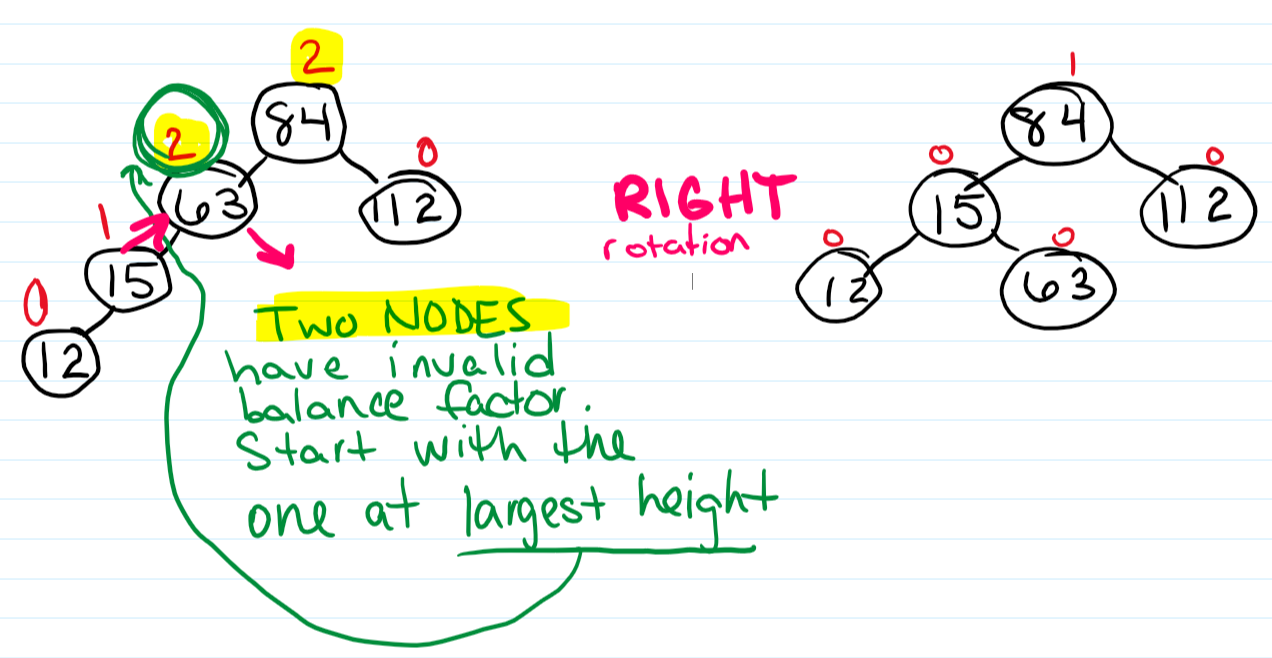 2
84
2
63
0
112
1
15
0
12
TWO NODES
have invalid
balance factor.
Start with the
one at largest height
RIGHT
rotation
1
84
0
15
0
112
0
12
0
63